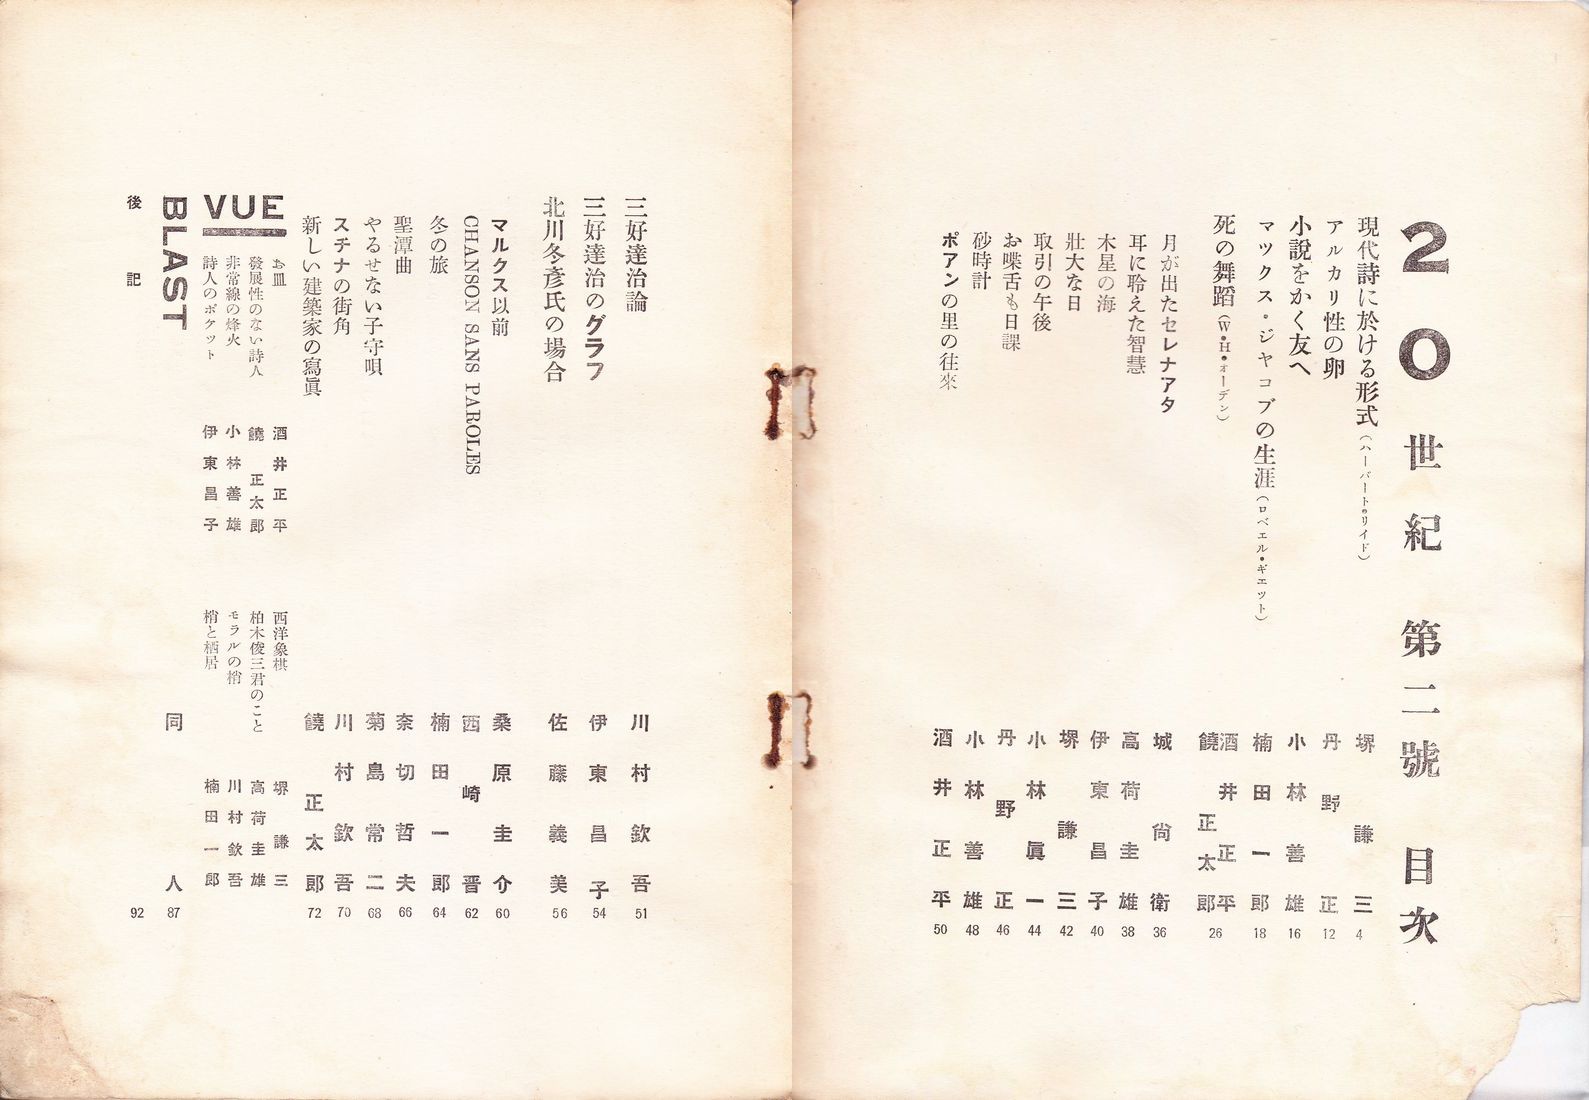 20世紀 第二號 目次
現代詩に於ける形式(ハーバート・リイド) 堺謙三 4
アルカリ性の卵 丹野正 12
小説をかく友へ 小林善雄 16
マツクス・ジヤコブの生涯(ロベエル・ギエツト) 楠田一郎 18
死の舞蹈(W・H・オーデン) 酒井正平 饒正太郎 26
月が出たセレナアタ 城尚衛 36
耳に聆えた智慧 高荷圭雄 38
木星の海 伊東昌子 40
壯大な日 堺謙三 42
取引の午後 小林眞一 44
お喋舌も日課 丹野正 46
砂時計 小林善雄 48
ポアンの里の往來 酒井正平 50
三好達治論 川村欽吾 51
三好達治のグラフ 伊東昌子 54
北川冬彦氏の場合 佐藤義美 56
マルクス以前 桑原圭介 60
CHANSON SANS PAROLES 西崎晋 62
冬の旅 楠田一郎 64
聖潭曲 奈切哲夫 66
やるせない子守唄 菊島常二 68
スチナの街角 川村欽吾 70
新しい建築家の寫眞 饒正太郎 72
VUE
お皿 酒井正平 西洋象棋 堺謙三
發展性のない詩人 饒正太郎 柏木俊三君のこと 高荷圭雄
非常線の烽火 小林善雄 モラルの梢 川村欽吾
詩人のポケット 伊東昌子 梢と栖居 楠田一郎
BLAST 同人 87
後記 92